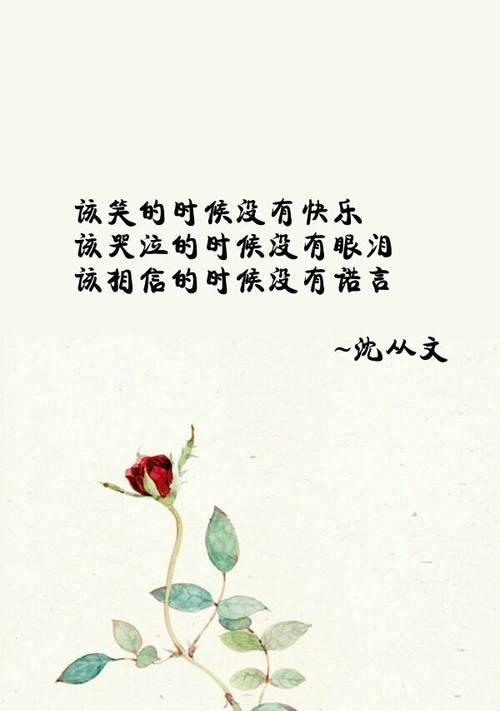 该笑的时候没有快乐
该哭泣的时候没有眼泪
该相信的时候没有诺言
~沈从文